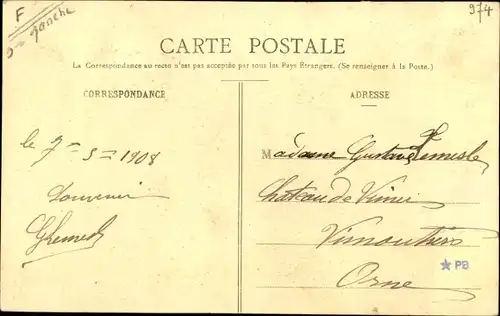 F
Manche
974
CARTE POSTALE
La Correspondance au recto n'est pas acceptée par tous les Pays Étrangers. (Se renseigner à la Poste.)
CORRESPONDANCE
ADRESSE
le 7-3-1908
Souvenir
GLemesle
Madame Gustave Lemesle
Chateau de Vimer
Vimoutiers
Orne
★ PB